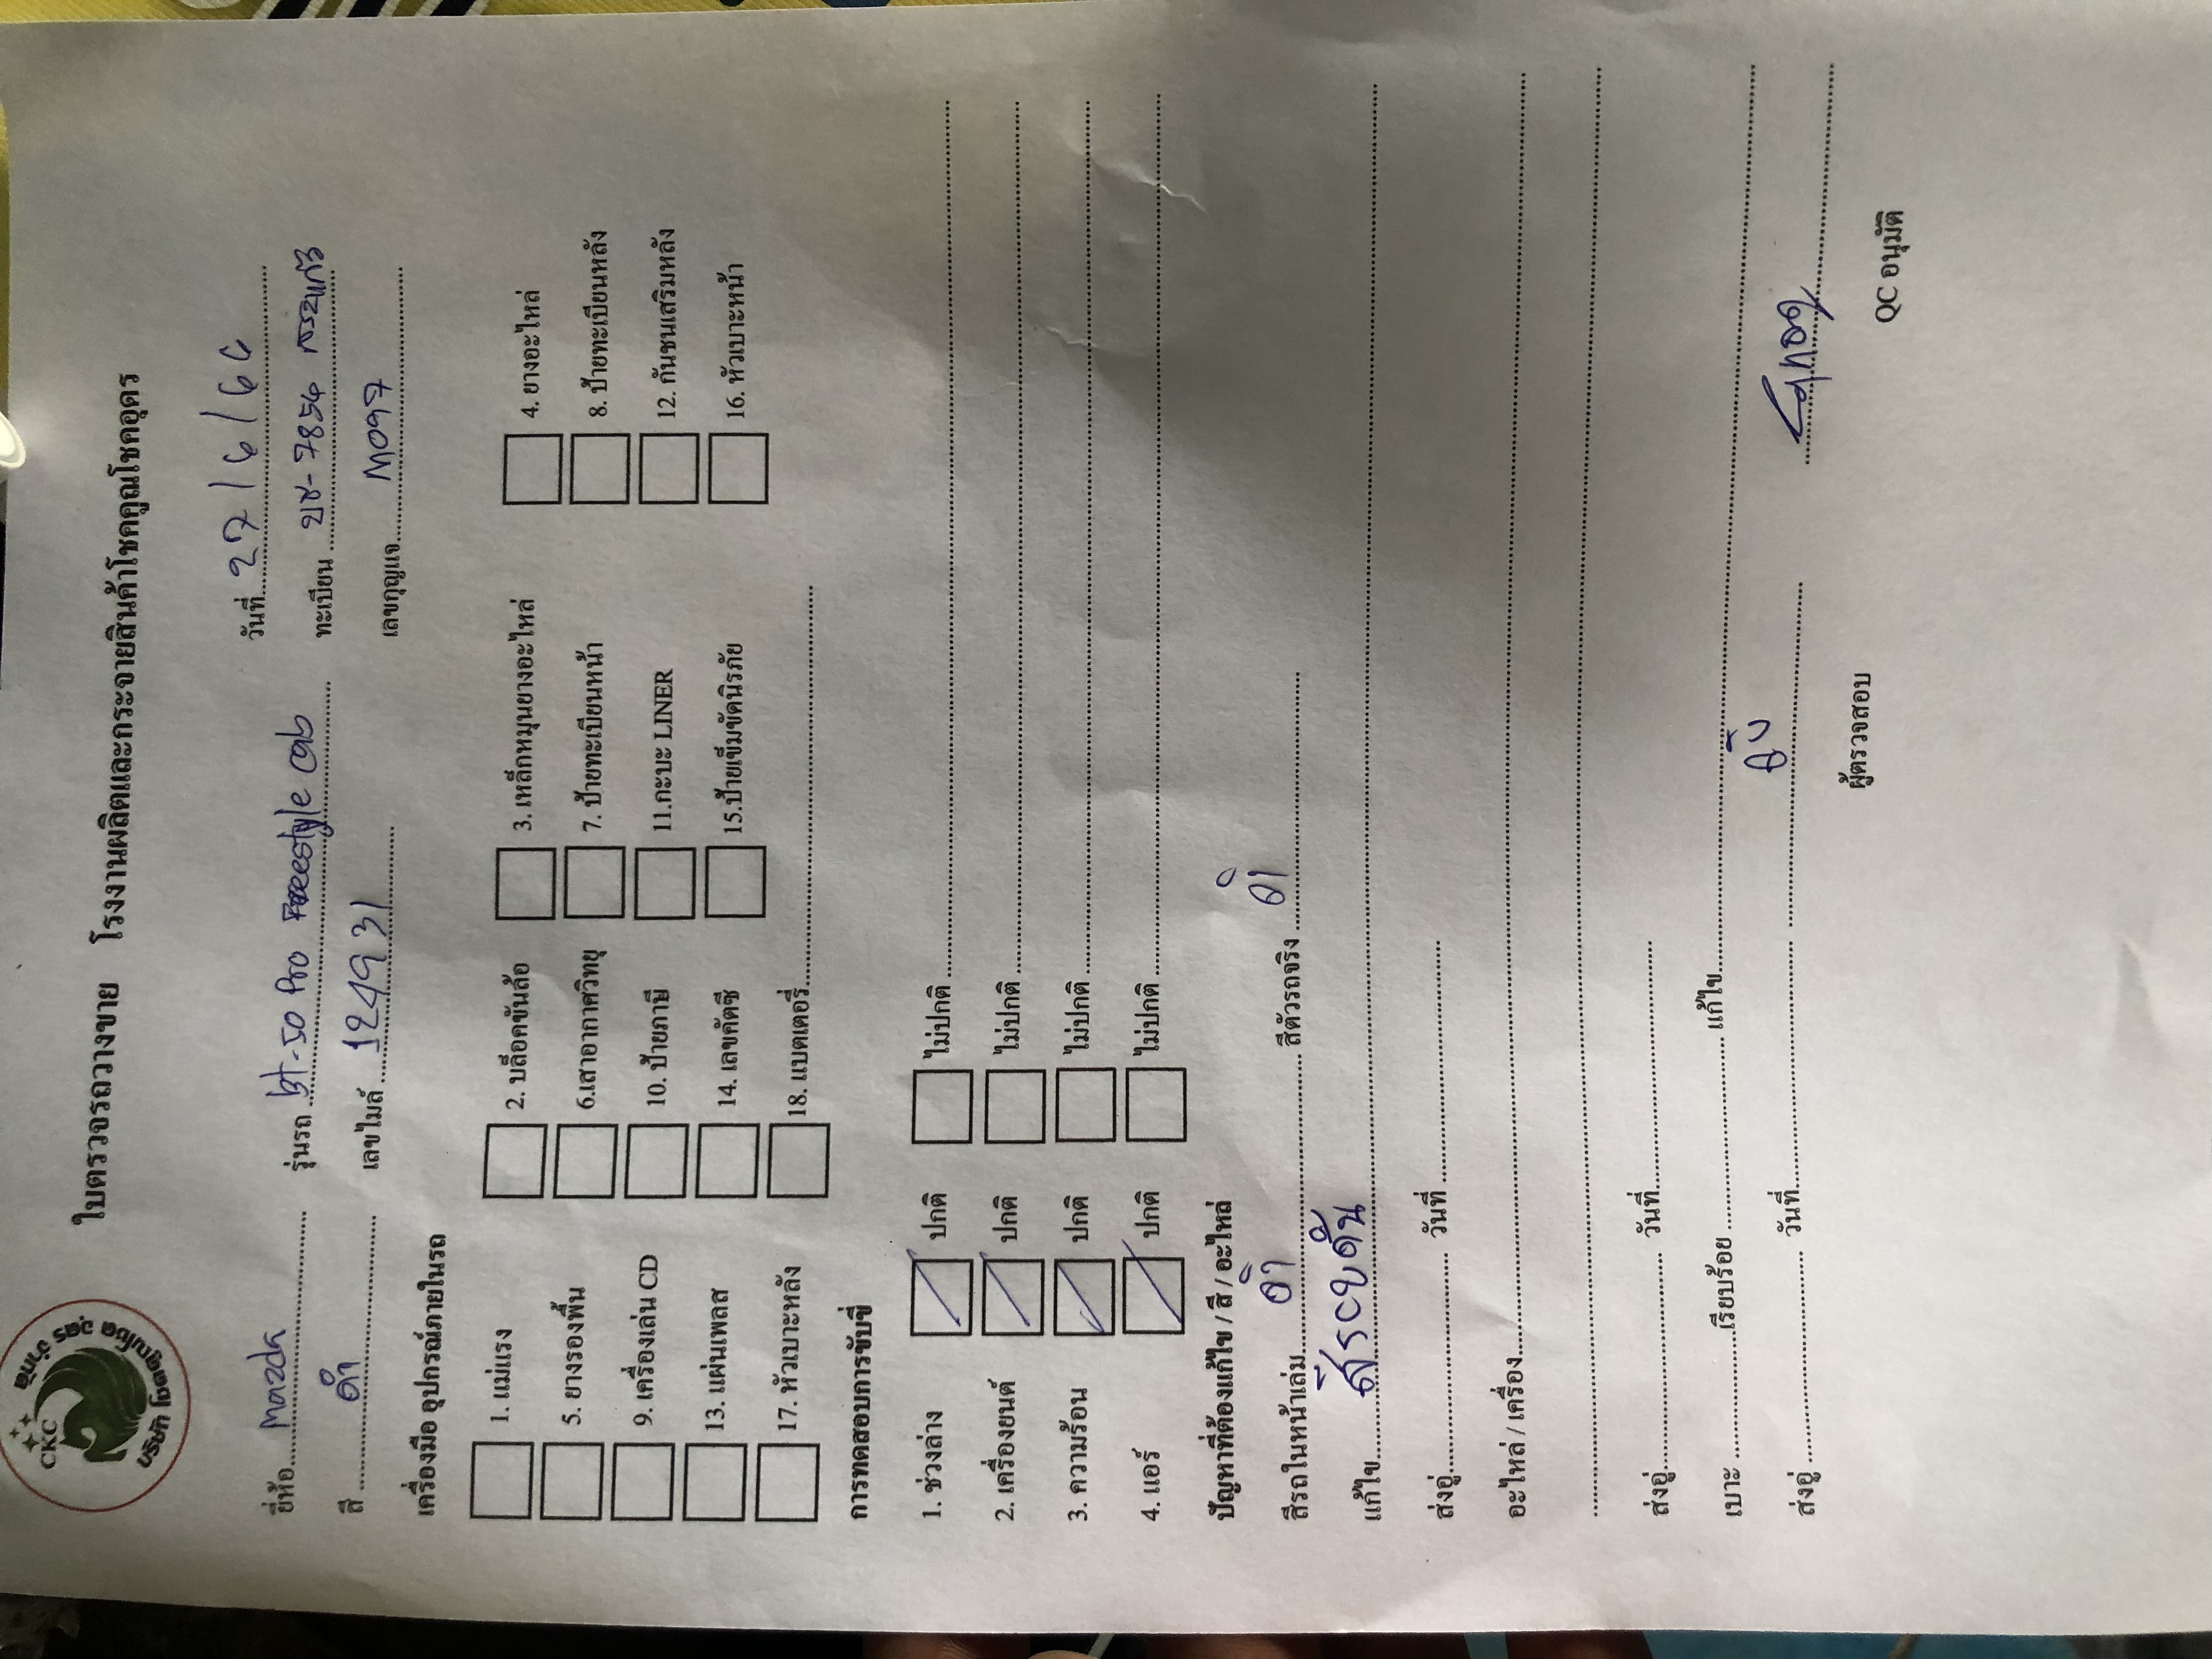 CKC
บริษัท โชคคูณโชค อุดร จำกัด
ใบตรวจรถวางขาย โรงงานผลิตและกระจายสินค้าโชคคูณโชคอุดร
วันที่ 27/6/66
ยี่ห้อ Mazda รุ่นรถ bt-50 Pro Freestyle Cab ทะเบียน บช-7854 สระแก้ว
สี ดำ เลขไมล์ 124931 เลขกุญแจ M097
เครื่องมือ อุปกรณ์ภายในรถ
1. แม่แรง 2. บล็อคขันล้อ 3. เหล็กหมุนยางอะไหล่ 4. ยางอะไหล่
5. ยางรองพื้น 6.เสาอากาศวิทยุ 7. ป้ายทะเบียนหน้า 8. ป้ายทะเบียนหลัง
9. เครื่องเล่น CD 10. ป้ายภาษี 11.กะบะ LINER 12. กันชนเสริมหลัง
13. แผ่นเพลส 14. เลขคัตซี 15.ป้ายเข็มขัดนิรภัย 16. หัวเบาะหน้า
17. หัวเบาะหลัง 18. แบตเตอรี่
การทดสอบการขับขี่
1. ช่วงล่าง ปกติ ไม่ปกติ
2. เครื่องยนต์ ปกติ ไม่ปกติ
3. ความร้อน ปกติ ไม่ปกติ
4. แอร์ ปกติ ไม่ปกติ
ปัญหาที่ต้องแก้ไข / สี / อะไหล่
สีรถในหน้าเล่ม ดำ สีตัวรถจริง ดำ
แก้ไข
ส่งอู่ วันที่
อะไหล่ / เครื่อง
ส่งอู่ วันที่
เบาะ เรียบร้อย แก้ไข
ส่งอู่ วันที่
ผู้ตรวจสอบ QC อนุมัติ